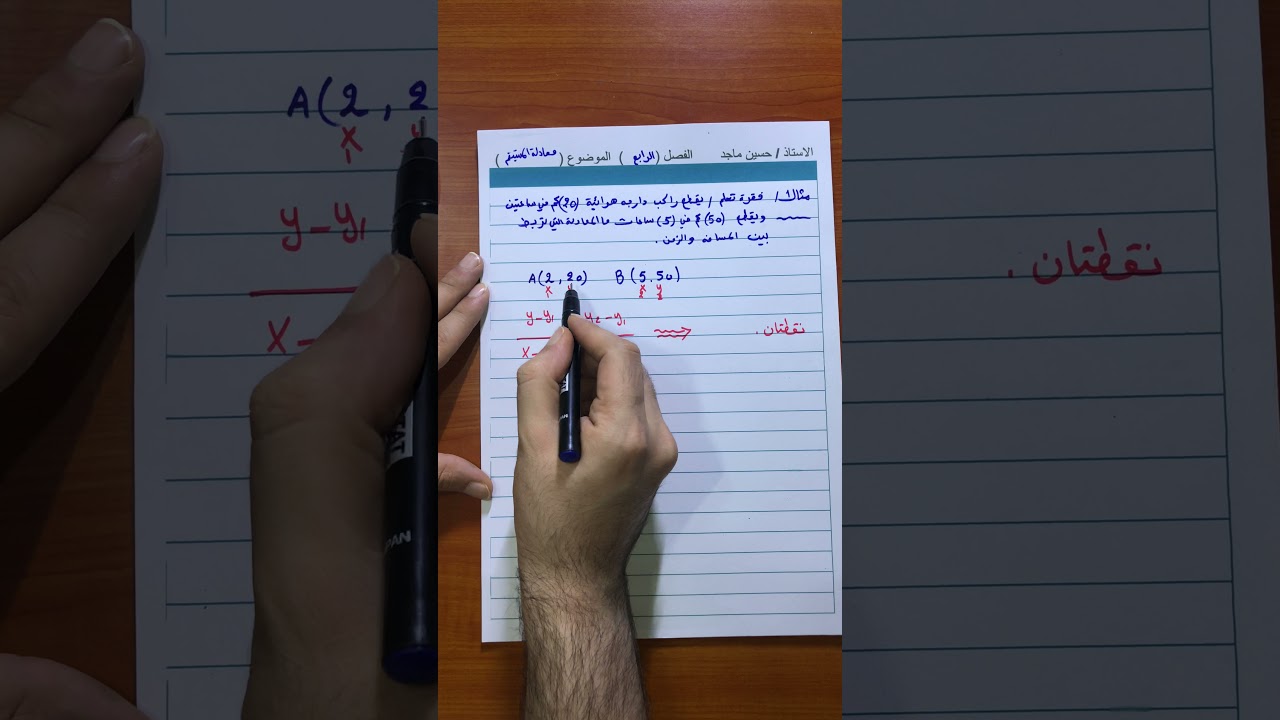 الاستاذ / حسين ماجد الفصل (الرابع) الموضوع (معادلة المستقيم)
مثال1/ فقرة تعلم / يقطع راكب دارجه هوائية (20)كم في ساعتين
ويقطع (50)كم في (5) ساعات ما المعادلة التي تربط
بين المسافه والزمن .
A(2,20) B(5.50)
x1 x2 y2
y-y1 y2-y1
نقطتان .
x-